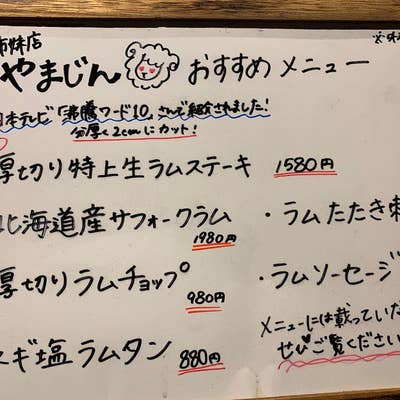 姉妹店
やまじん おすすめメニュー
日本テレビ「沸騰ワード10」さんで紹介されました!
分厚く2cmにカット!
厚切り特上生ラムステーキ 1580円
北海道産サフォークラム 1980円
・ラムたたき刺
厚切りラムチョップ 980円
・ラムソーセージ
ネギ塩ラムタン 880円
メニューには載っていな
ぜひご覧ください